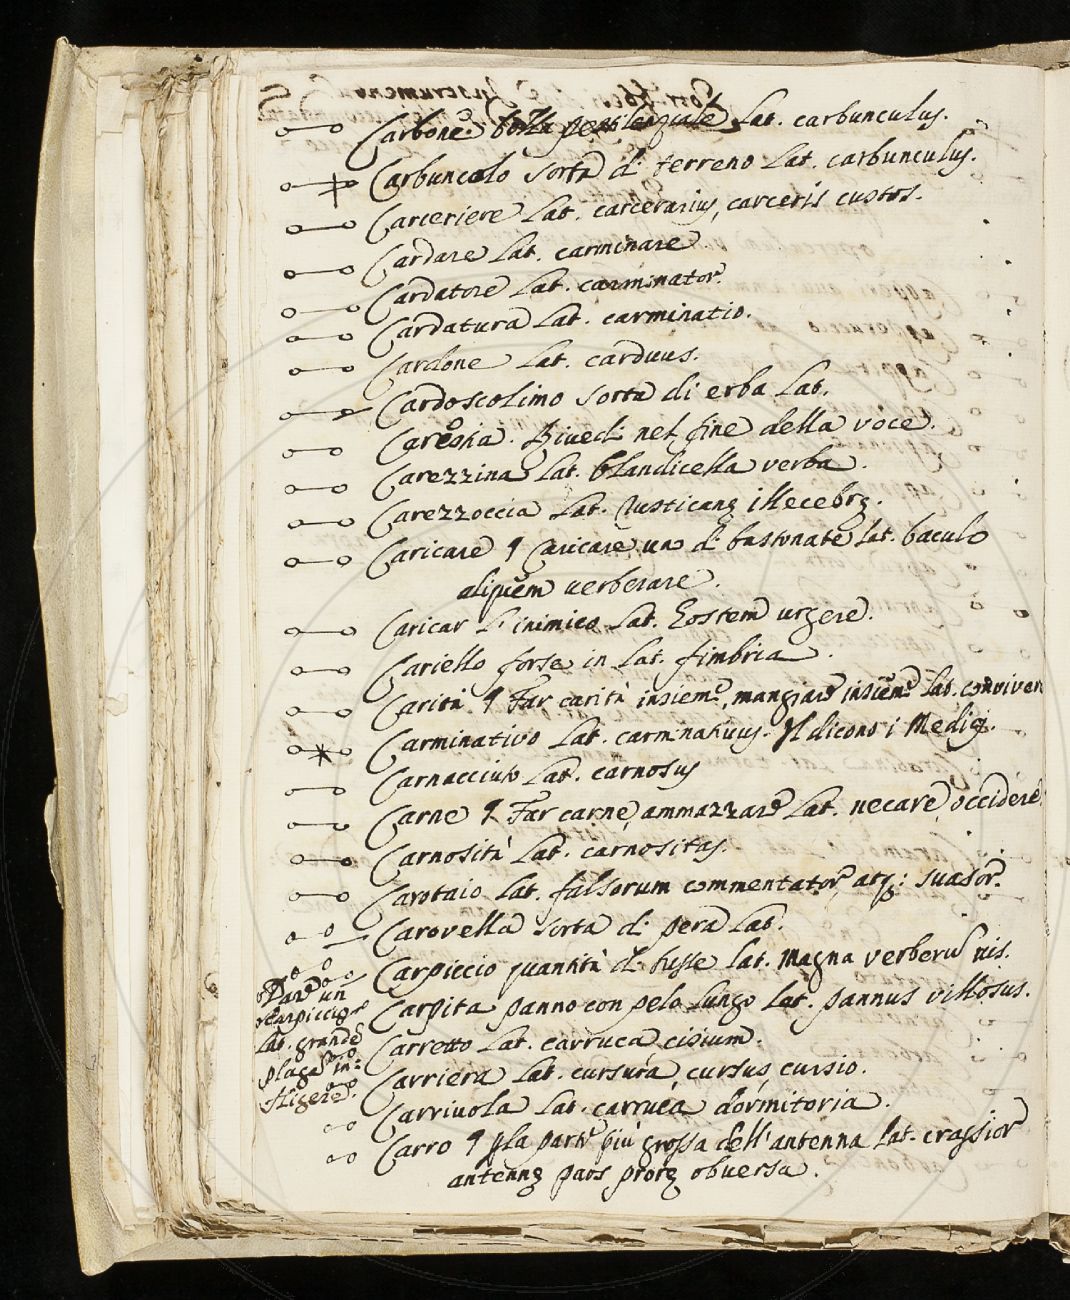 Carbone: bolla pestilenziale Lat. carbunculus.
Carbuncolo sorta di terreno Lat. carbunculus.
Carceriere Lat. carcerarius, carceris custos.
Cardare Lat. carminare
Cardatore Lat. carminator.
Cardatura Lat. carminatio.
Cardone Lat. carduus.
Cardoscolimo sorta di erba Lat.
Carestia. Rivedi nel fine della voce.
Carezzina Lat. blandicella verba.
Carezzoccia Lat. rusticanę illecebrę.
Caricare ¶ Caricare uno di bastonate Lat. baculo
aliquem verberare.
Caricar l'inimico Lat. hostem urgere.
Cariello forse in Lat. fimbria.
Carità ¶ Far carità insieme, mangiare insieme Lat. conviver
Carminativo Lat. carminativus. Il dicono i Medici.
Carnacciuto Lat. carnosus
Carne ¶ Far carne, ammazzare Lat. necare, occidere
Carnosità Lat. carnositas.
Carotaio Lat. falsorum commentator, atq: suasor.
Carovella sorta di pera Lat.
Carpiccio quantità di busse Lat. Magna verberum vis.
Dare un
carpiccio
Lat. grande
plaga in=
fligere.
Carpita panno con pelo lungo Lat. pannus villosus.
Carretto Lat. carruca, cisium.
Carriera Lat. cursura, cursus, cursio.
Carriuola Lat. carruca dormitoria.
Carro ¶ pla parte più grossa dell'antenna Lat. crassior
antennę pars prorę obversa.